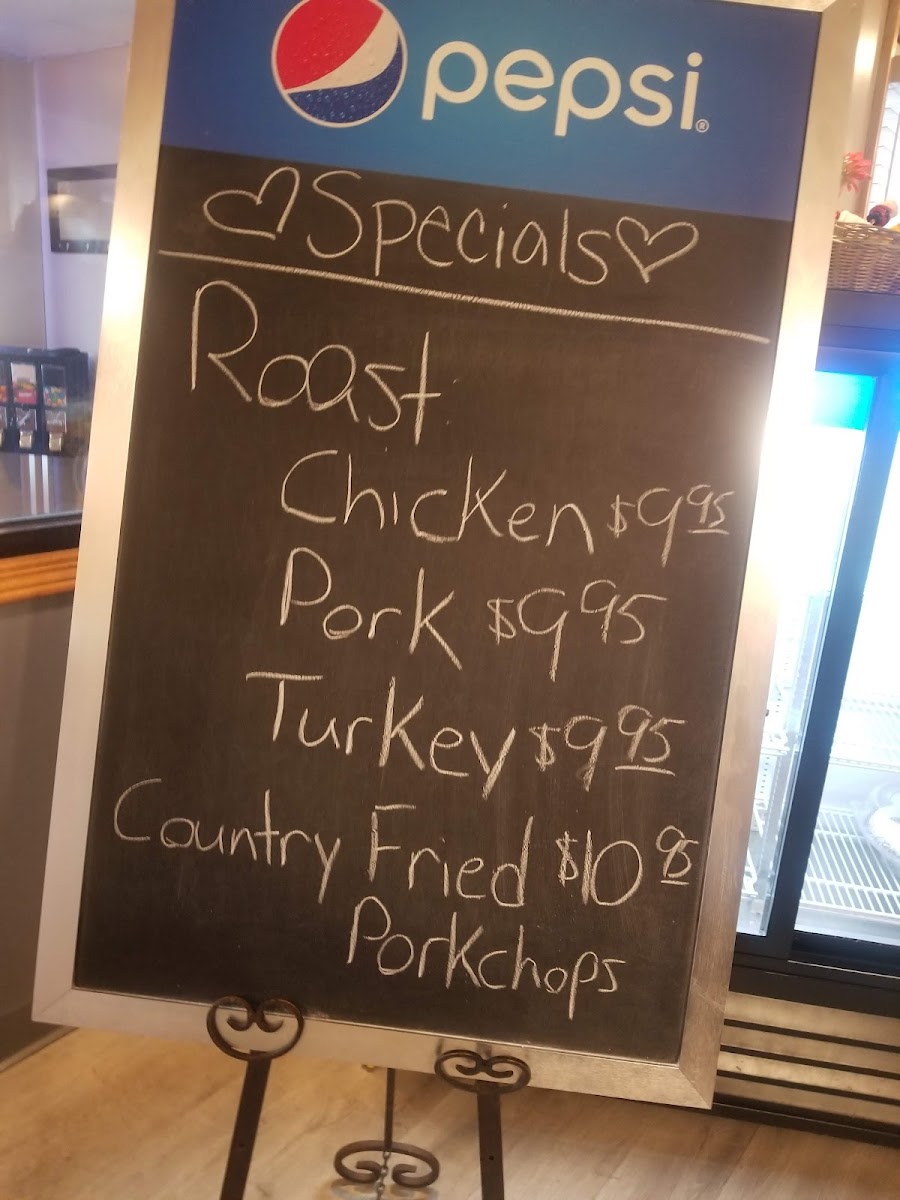 pepsi®
♡Specials♡
Roast
Chicken $9.95
Pork $9.95
Turkey $9.95
Country Fried $10.95
Porkchops